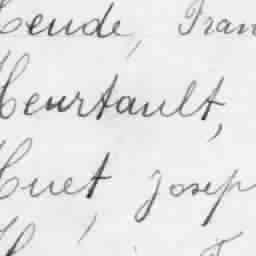 Heude, Fran
Heurtault,
Huet, Josep